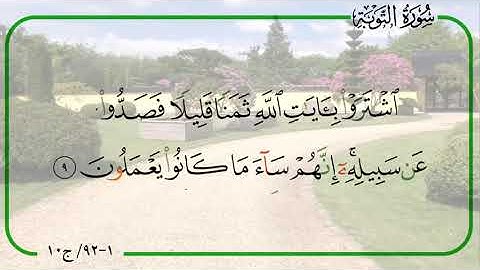 سُورَةُ التَّوْبَةِ
ٱشْتَرَوْا۟ بِـَٔايَـٰتِ ٱللَّهِ ثَمَنًا قَلِيلًا فَصَدُّوا۟
عَن سَبِيلِهِۦٓ ۚ إِنَّهُمْ سَآءَ مَا كَانُوا۟ يَعْمَلُونَ ٩
١-٩٢/ ج١٠